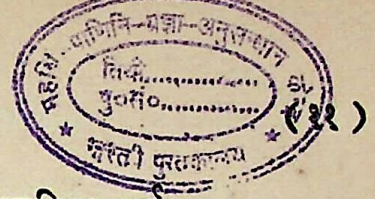 महर्षि-पाणिनि-प्रज्ञा-अनुसन्धान
तिथि..............
पु०सं०..............
भारती पुस्तकालय